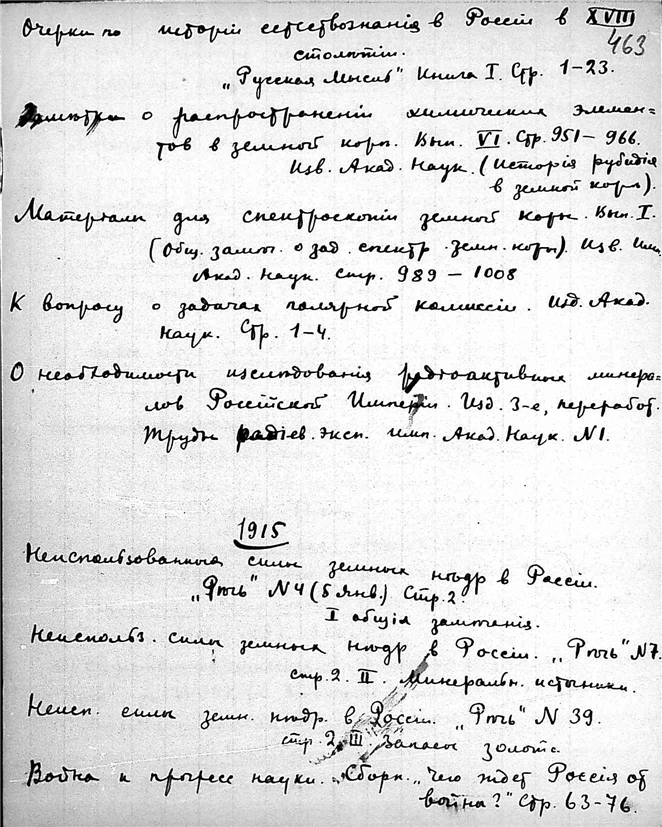 Очерки по исторіи естествознанія в Россіи в XVIII
463
столѣтіи.
„Русская Мысль" Книга I. Стр. 1-23.
Замѣтки о распространеніи химических элемен=
тов в земной корѣ. Вып. VI. Стр. 951-966.
Изв. Акад. Наук. (Исторія рубидія
в земной корѣ).
Матерьалы для спектроскопіи земной коры. Вып. I.
(Общ. замѣч. о зад. спектр. земн. коры). Изв. Имп.
Акад. Наук. стр. 989 - 1008
К вопросу о задачах полярной комиссіи. Изд. Акад.
Наук. Стр. 1-4.
О необходимости изслѣдованія радіоактивных минера-
лов Россійской Имперіи. Изд. 3-е, переработ.
Труды радіев. эксп. имп. Акад. Наук. N1.
1915
Неиспользованныя силы земных нѣдр в Россіи.
„Рѣчь" N4 (5 Янв.) Стр. 2.
I общія замѣчанія.
Неиспольз. силы земных нѣдр в Россіи. „Рѣчь" N7.
стр. 2. II. Минеральн. источники.
Неисп. силы земн. нѣдр. в Россіи. „Рѣчь" N 39.
стр. 2. III запасы золота.
Война и прогресс науки. Сборн. „Чего ждет Россія от
войны?" Стр. 63-76.